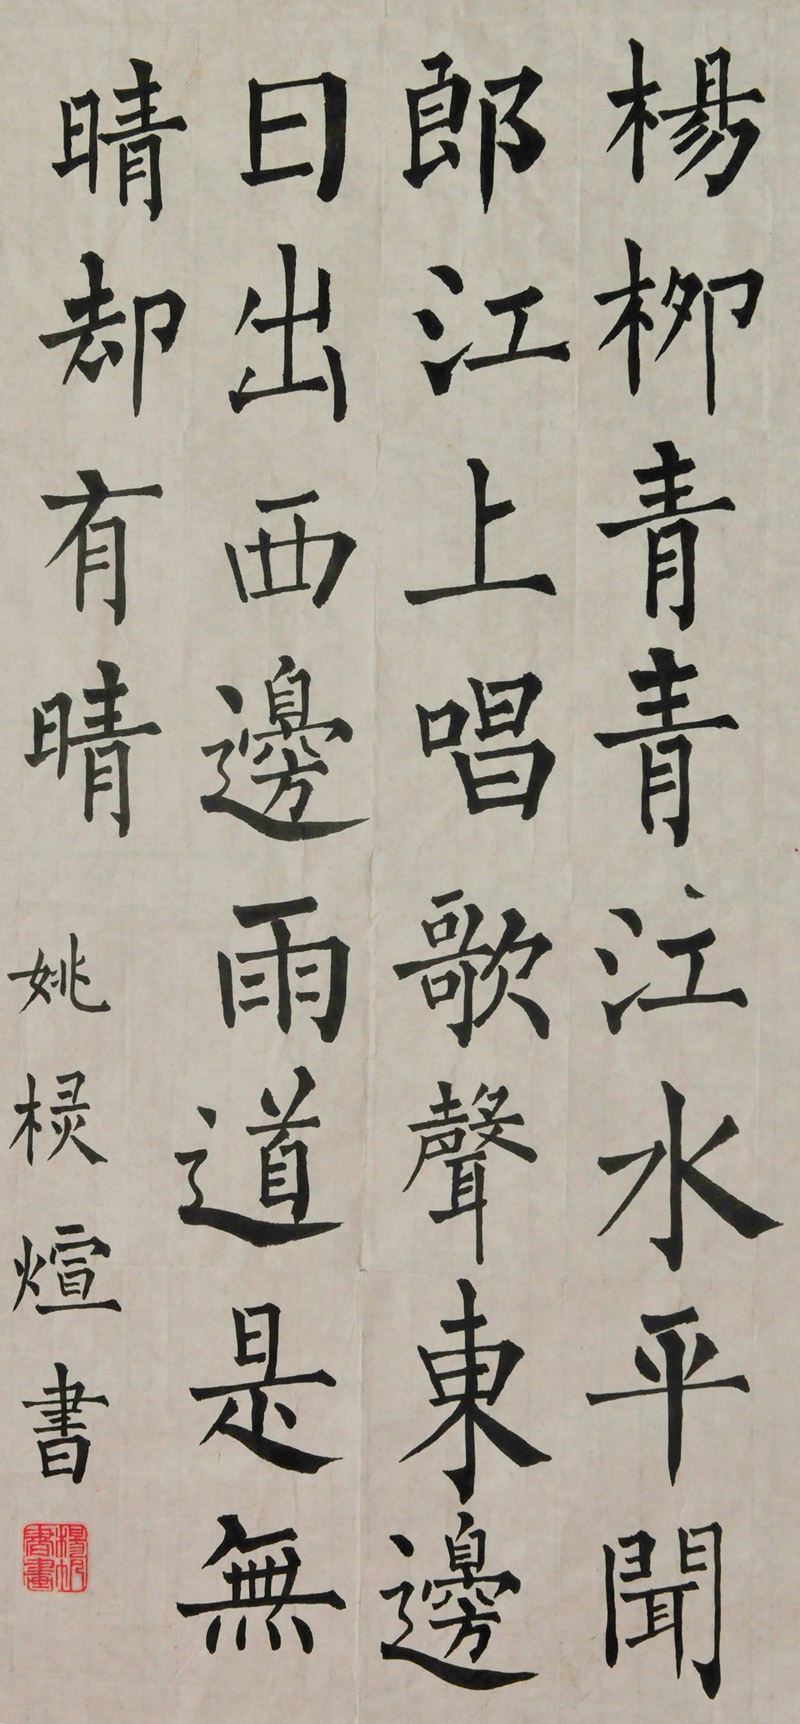 楊柳青青江水平聞
郎江上唱歌聲東邊
日出西邊雨道是無
晴却有晴
姚榠煊書